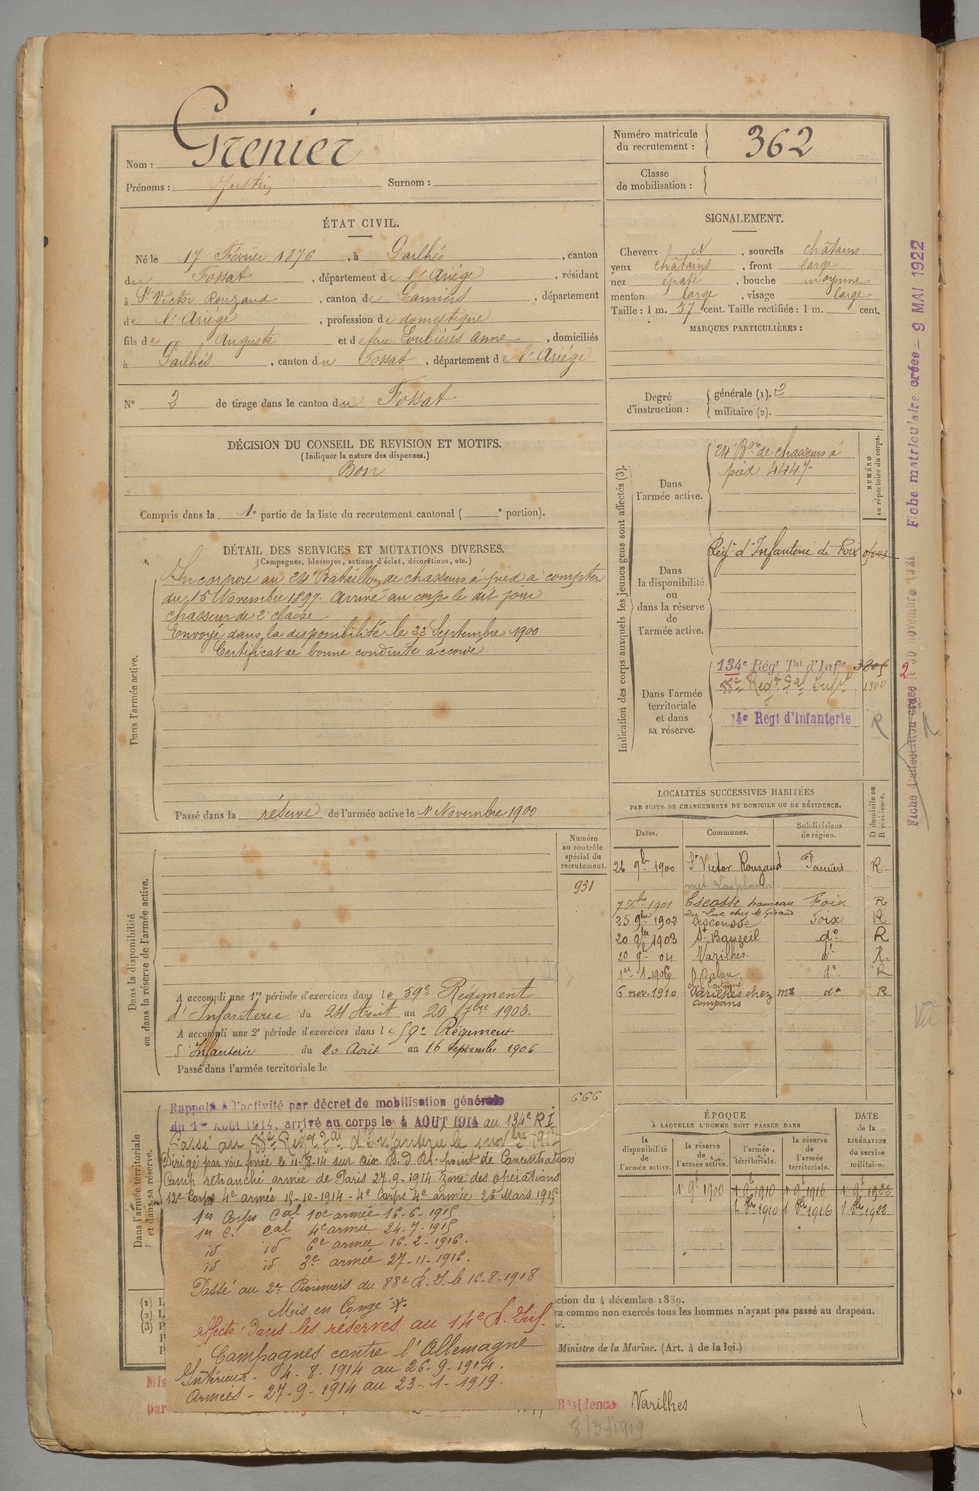 Nom : Grenier
Prénoms : Justin Surnom :
Numéro matricule
du recrutement : 362
Classe
de mobilisation :
ÉTAT CIVIL.
Né le 17 Février 1876, à Pailhès, canton
du Fossat, département de l'Ariège, résidant
à St Victor Rouzaud, canton de Pamiers, département
de l'Ariège, profession de domestique
fils de Auguste et de Loubières Anne, domiciliés
à Pailhès, canton du Fossat, département de l'Ariège
N° 2 de tirage dans le canton du Fossat
SIGNALEMENT.
Cheveux N, sourcils châtains
yeux châtains, front large
nez épaté, bouche moyenne
menton large, visage large
Taille : 1 m. 57 cent. Taille rectifiée : 1 m. cent.
MARQUES PARTICULIÈRES :
Degré
d'instruction :
générale (1). 2
militaire (2).
DÉCISION DU CONSEIL DE REVISION ET MOTIFS.
(Indiquer la nature des dispenses.)
Bon
Compris dans la 1e partie de la liste du recrutement cantonal ( e portion).
DÉTAIL DES SERVICES ET MUTATIONS DIVERSES.
(Campagnes, blessures, actions d'éclat, décorations, etc.)
Dans l'armée active.
Incorporé au 24e Bataillon de chasseurs à pied à compter
du 15 Novembre 1897. Arrivé au corps le dit jour
chasseur de 2e classe
Envoyé dans la disponibilité le 22 Septembre 1900
Certificat de bonne conduite accordé
Passé dans la réserve de l'armée active le 1er Novembre 1900
Indication des corps auxquels les jeunes gens sont affectés (3).
NUMÉRO
au répertoire du corps.
Dans
l'armée active.
24e Bon de chasseurs à
pied 4447
Dans
la disponibilité
ou
dans la réserve
de
l'armée active.
Régt d'Infanterie de Foix
Dans l'armée
territoriale
et dans
sa réserve.
134e Régt Tal d'Infie
14e Regt d'Infanterie
R
LOCALITÉS SUCCESSIVES HABITÉES
PAR SUITE DE CHANGEMENTS DE DOMICILE OU DE RÉSIDENCE.
Dates. Communes. Subdivisions
de région. D domicile ou
R résidence.
26 9bre 1900 St Victor Rouzaud Pamiers R
7 Xbre 1901 Escosse hameau Foix R
25 9bre 1902 Lescousse Foix R
20 9bre 1903 St Bauzeil do R
20 9e 04 Varilhes do R
1er 1-1906 do R
6 nov. 1910 Varilhes chez Mr do R
Numéro
au contrôle
spécial du
recrutement.
931
666
Dans la disponibilité
ou dans la réserve de l'armée active.
A accompli une 1re période d'exercices dans le 59e Régiment
d'Infanterie du 24 Août au 20 7bre 1903.
A accompli une 2e période d'exercices dans le 59e Régiment
d'Infanterie du 20 Août au 16 Septembre 1906
Passé dans l'armée territoriale le
Dans l'armée territoriale
et dans sa réserve.
Rappelé à l'activité par décret de mobilisation générale
du 1er AOUT 1914, arrivé au corps le 4 AOUT 1914 au 134e RI
Dirigé par voie ferrée le 11-8-14 sur Aix B.D.R. point de Concentration
Camp retranché armée de Paris 27-9-1914 Zone des opérations
12e Corps 4e armée 15-10-1914 - 4e Corps 4e armée 26 Mars 1915
1er Corps Cal 10e armée 16-6-1915
1er C. Cal 4e armée 24-7-1915
id id 6e armée 16-2-1916.
id id 3e armée 27-11-1916.
Passé au 2e Pionniers du 88e R.I. le 16-8-1918
Mis en Congé
Affecté dans les réserves au 14e R. Inf.
Campagnes contre l'Allemagne
Intérieur - 4-8-1914 au 26-9-1914.
Armées - 27-9-1914 au 23-1-1919.
ÉPOQUE
À LAQUELLE L'HOMME DOIT PASSER DANS
la
disponibilité
de
l'armée active.
la réserve
de
l'armée active.
l'armée
territoriale.
la réserve
de
l'armée
territoriale.
DATE
de la
LIBÉRATION
du service
militaire.
1 9e 1900 1 9e 1910 1 9e 1916 1 9e 1922
1 8bre 1910 1 8bre 1916 1 8bre 1922
(1)
(2)
(3)
ction du 4 décembre 1889.
ra comme non exercés tous les hommes n'ayant pas passé au drapeau.
Ministre de la Marine. (Art. 4 de la loi.)
Résidence Varilhes
8/3/1919
Fiche matriculaire créée - 9 MAI 1922